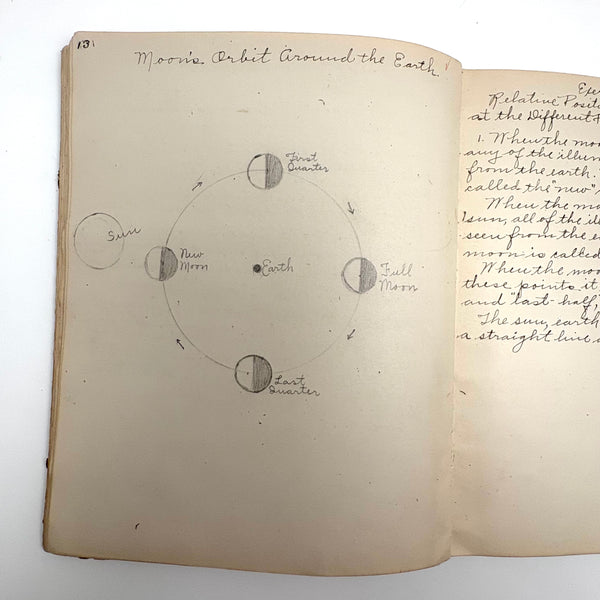 131
Moon's Orbit Around the Earth.
First
Quarter
Sun
New
Moon
Earth
Full
Moon
Last
Quarter
Relative
at the Different
1. When the
any of the
from the earth.
called the "new"
When the
sun, all of the
seen from the
moon is called
When the
these points it
and "last half,"
The sun, earth
a straight line